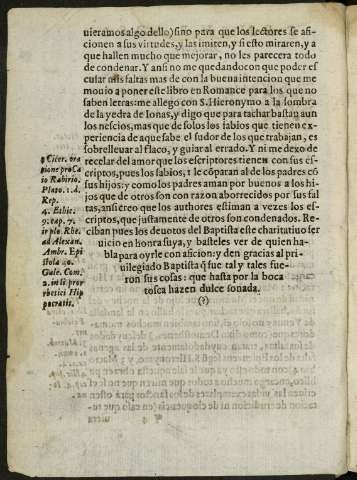 uieramos algo dello) sino para que los lectores se afi-
cionen a sus virtudes, y las imiten, y si esto miraren, y a
que hallen mucho que mejorar, no les parecera todo
de condenar. Y ansi no me quedando con que poder es
cular mis faltas mas de con la buena intencion que me
mouio a poner este libro en Romance para los que no
saben letras: me allego con S. Hieronymo a la sombra
de la yedra de Ionas, y digo que para tachar bastan aun
los nescios, mas que de solos los sabios que tienen ex-
periencia de a que sabe el sudor de los que trabajan, es
sobrelleuar al flaco, y guiar al errado. Y ni me dexo de
recelar del amor que los escriptores tienen con sus es-
criptos, pues los sabios, le cõparan al de los padres cõ
sus hijos: y como los padres aman por buenos a los hi-
jos que de otros son con razon aborrecidos por sus fal
tas, ansi creo que los authores estiman a vezes los es-
criptos, que justamente de otros son condenados. Re-
ciban pues los deuotos del Baptista este charitatiuo ser
uicio en honra suya, y basteles ver de quien ha-
bla para oyrle con aficion: y den gracias al pri-
uilegiado Baptista q̃ fue tal y tales fue-
ron sus cosas: que hasta por la boca
tosca hazen dulce sonada.
(?)
Cicer. ora
tione pro Ca
io Rabirio.
Plato. 1. d.
Rep.
4. Ethic.
7. cap. 7.
ir plo. Rhe.
ad Alexan.
Ambr. Epi
stola 40.
Gale. Com.
2. in li pror
rhetici Hip
pocratis.